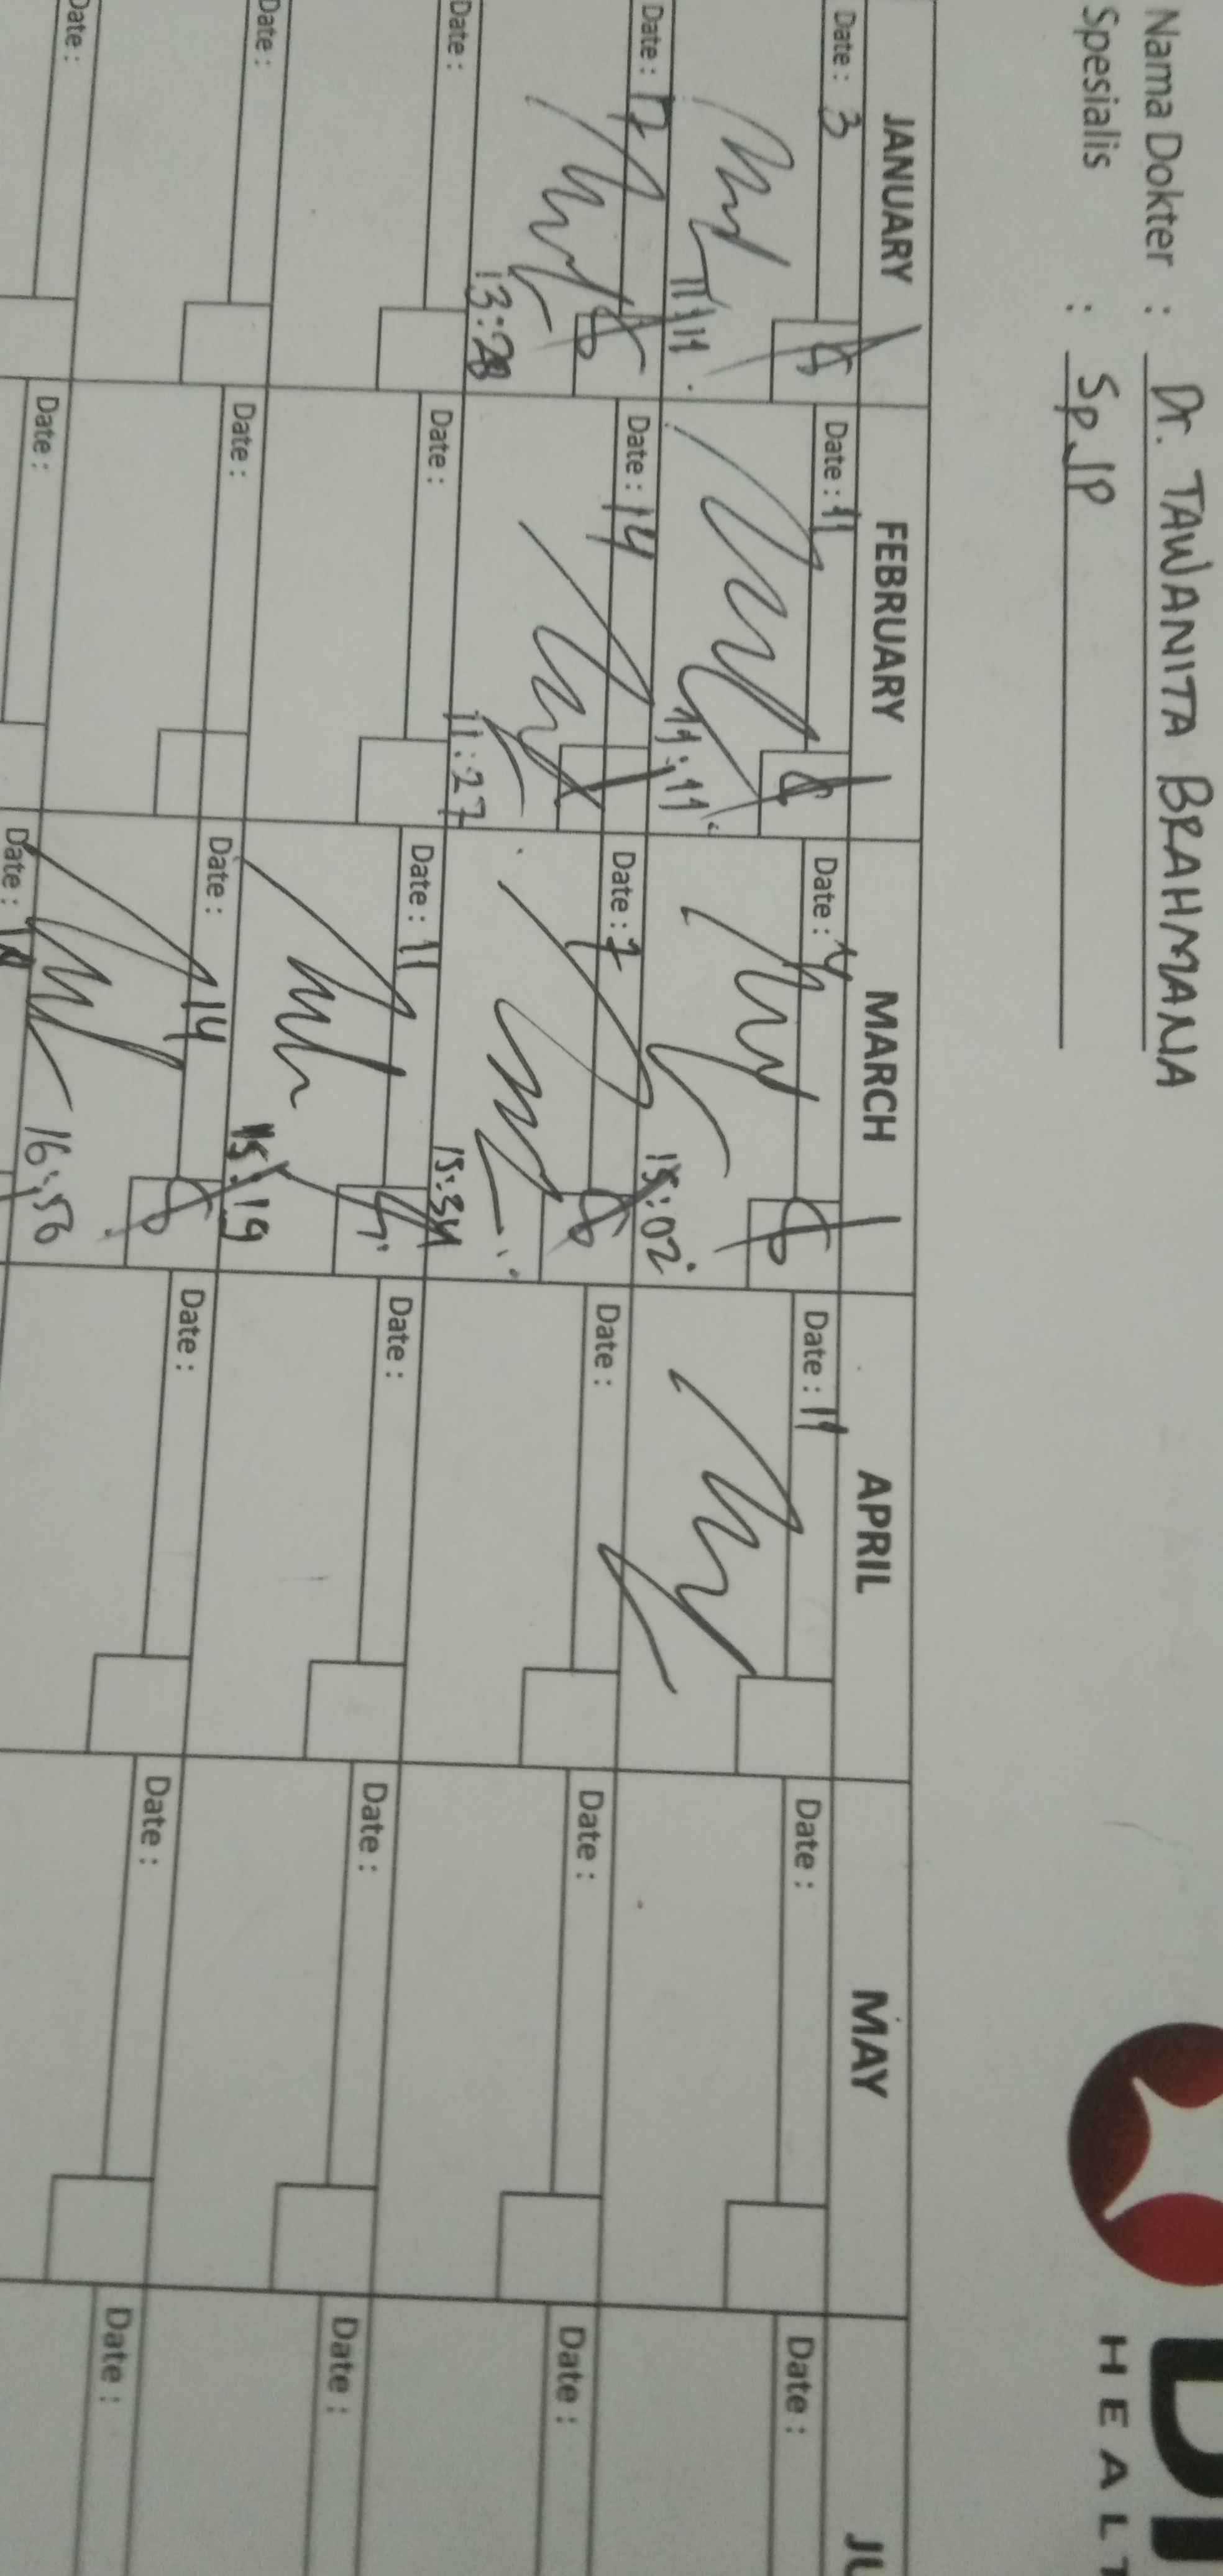 Nama Dokter : Dr. TAWANITA BRAHMANA
Spesialis : Sp.JP
HEALT
JANUARY FEBRUARY MARCH APRIL MAY JU
Date : 3 Date : 11 Date : 4 Date : 11 Date : Date :
11:11 11:11 15:02
Date : 17 Date : 14 Date : 7 Date : Date : Date :
13:28 11:27 15:34
Date : Date : Date : 11 Date : Date : Date :
15:19
Date : Date : Date : 14 Date : Date : Date :
16:56
Date : Date : Date :